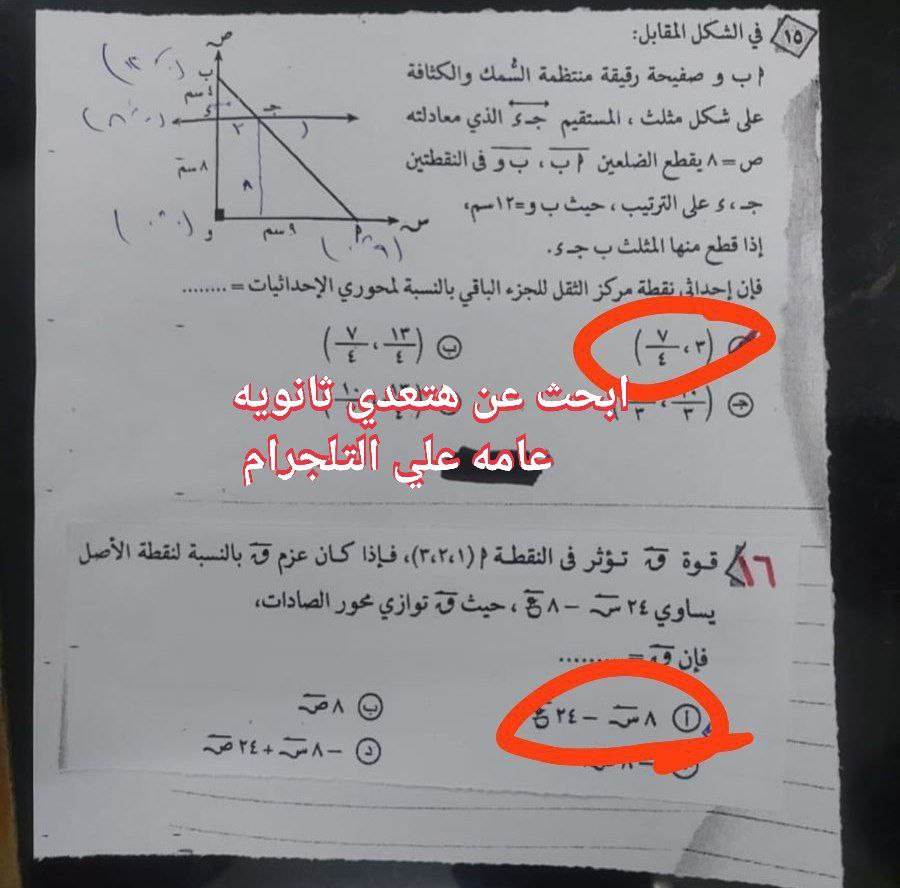 ١٥ في الشكل المقابل:
ا ب و صفيحة رقيقة منتظمة السُّمك والكثافة
على شكل مثلث ، المستقيم جـ ء الذي معادلته
ص = ٨ يقطع الضلعين ا ب ، ب و فى النقطتين
جـ ، ء على الترتيب ، حيث ب و = ١٢ سم،
إذا قطع منها المثلث ب جـ ء.
فإن إحداثى نقطة مركز الثقل للجزء الباقي بالنسبة لمحوري الإحداثيات = ........
ص
ب
٤ سم
ء جـ
٣
٨ سم ٨
و ٩ سم ا س
(٠ ، ١٢)
(٠ ، ٨)
(٠ ، ٠)
(٩ ، ٠)
(٣ ، ٧/٤) ب (١٣/٤ ، ٧/٤)
جـ
ابحث عن هتعدي ثانويه
عامه علي التلجرام
١٦ قوة ق تؤثر فى النقطة ا (١،٢،٣)، فإذا كان عزم ق بالنسبة لنقطة الأصل
يساوي ٢٤ س − ٨ ع ، حيث ق توازي محور الصادات،
فإن ق = ........
أ ٨ س − ٢٤ ع ب ٨ ص
د − ٨ س + ٢٤ ص